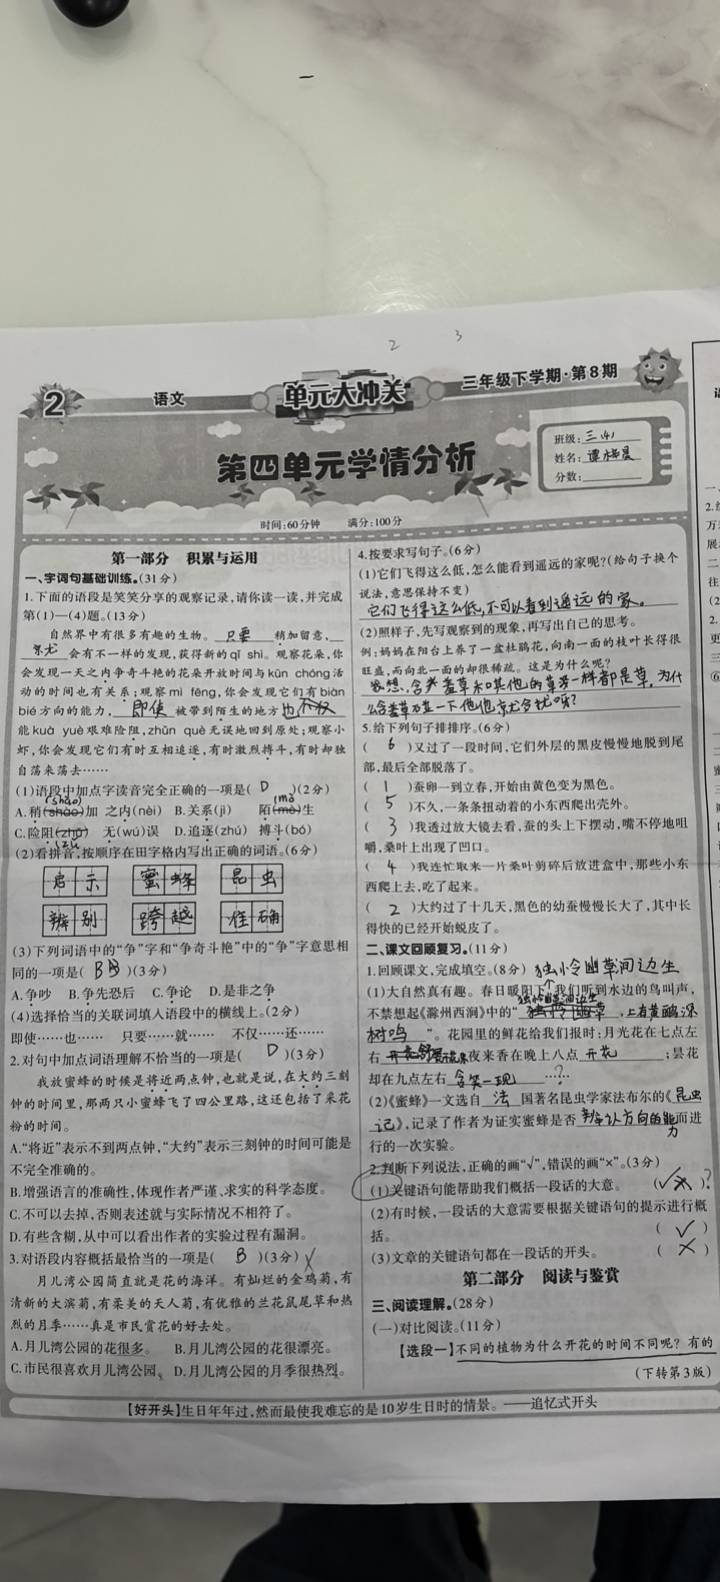 2 3
2
语文
单元大冲关
三年级下学期·第8期
第四单元学情分析
班级:三(4)
姓名:
分数:
时间:60分钟 满分:100分
第一部分 积累与运用
一、字词句基础训练。(31分)
1.下面的语段是笑笑分享的观察记录,请你读一读,并完成
第(1)—(4)题。(13分)
自然界中有很多有趣的生物。只要稍加留意,
就尤会有不一样的发现,获得新的qǐ shì。观察花朵,你
会发现一天之内争奇斗艳的花朵开放时间与kūn chóng活
动的时间也有关系;观察mì fēng,你会发现它们有biàn
bié方向的能力,即使被带到陌生的地方也
能kuà yuè艰难险阻,zhǔn què无误地回到原处;观察小
虾,你会发现它们有时互相追逐,有时激烈搏斗,有时却独
自荡来荡去……
(1)语段中加点字读音完全正确的一项是( D )(2分)
(shāo) (mò)
A.稍(shào)加 之内(nèi) B.关系(jì) 陌(mè)生
C.险阻(zhǔ) 无(wú)误 D.追逐(zhú) 搏斗(bó)
(zǔ)
(2)看拼音,按顺序在田字格内写出正确的词语。(6分)
启示 蜜蜂 昆虫
辨别 跨越 准确
(3)下列词语中的“争”字和“争奇斗艳”中的“争”字意思相
同的一项是( B )(3分)
A.争吵 B.争先恐后 C.争论 D.是非之争
(4)选择恰当的关联词填入语段中的横线上。(2分)
即使……也…… 只要……就…… 不仅……还……
2.对句中加点词语理解不恰当的一项是( D )(3分)
我放蜜蜂的时候是将近两点钟,也就是说,在大约三刻
钟的时间里,那两只小蜜蜂飞了四公里路,这还包括了采花
粉的时间。
A.“将近”表示不到两点钟,“大约”表示三刻钟的时间可能是
不完全准确的。
B.增强语言的准确性,体现作者严谨、求实的科学态度。
C.不可以去掉,否则表述就与实际情况不相符了。
D.有些含糊,从中可以看出作者的实验过程有漏洞。
3.对语段内容概括最恰当的一项是( B )(3分)
月儿湾公园简直就是花的海洋。有灿烂的金鸡菊,有
清新的大滨菊,有柔美的天人菊,有优雅的兰花鼠尾草和热
烈的月季……真是市民赏花的好去处。
A.月儿湾公园的花很多。 B.月儿湾公园的花很漂亮。
C.市民很喜欢月儿湾公园。 D.月儿湾公园的月季很热烈。
4.按要求写句子。(6分)
(1)它们飞得这么低,怎么能看到遥远的家呢?(给句子换个
说法,意思保持不变)
它们飞得这么低,不可以看到遥远的家。
(2)照样子,先写观察到的现象,再写出自己的思考。
例:妈妈在阳台上养了一盆杜鹃花,向南一面的枝叶长得很
旺盛,而向北一面的却很稀疏。这是为什么呢?
我想,含羞草和其他的草一样都是草,为什
么含羞草
5.给下列句子排排序。(6分)
( 6 )又过了一段时间,它们外层的黑皮慢慢地脱到尾
部,最后全部脱落了。
( 1 )蚕卵一到立春,开始由黄色变为黑色。
( 5 )不久,一条条扭动着的小东西爬出壳外。
( 3 )我透过放大镜去看,蚕的头上下摆动,嘴不停地咀
嚼,桑叶上出现了凹口。
( 4 )我连忙取来一片桑叶剪碎后放进盒中,那些小东
西爬上去,吃了起来。
( 2 )大约过了十几天,黑色的幼蚕慢慢长大了,其中长
得快的已经开始蜕皮了。
二、课文回顾复习。(11分)
1.回顾课文,完成填空。(8分) 独怜幽草涧边生
(1)大自然真有趣。春日暖阳下,我们听到水边的鸟叫声,
不禁想起《滁州西涧》中的“独怜幽草,上有黄鹂深
树鸣”。花园里的鲜花给我们报时:月光花在七点左
右夜来香在晚上八点开花;昙花
却在九点左右含笑一现……?
(2)《蜜蜂》一文选自法国著名昆虫学家法布尔的《昆虫
记》,记录了作者为证实蜜蜂是否辨认方向的能力而进
行的一次实验。
2.判断下列说法,正确的画“√”,错误的画“×”。(3分)
(1)关键语句能帮助我们概括一段话的大意。 ( √ )?
(2)有时候,一段话的大意需要根据关键语句的提示进行概
括。 ( √ )
(3)文章的关键语句都在一段话的开头。 ( × )
第二部分 阅读与鉴赏
三、阅读理解。(28分)
(一)对比阅读。(11分)
【选段一】不同的植物为什么开花的时间不同呢?有的
(下转第3版)
【好开头】生日年年过,然而最使我难忘的是10岁生日时的情景。——追忆式开头